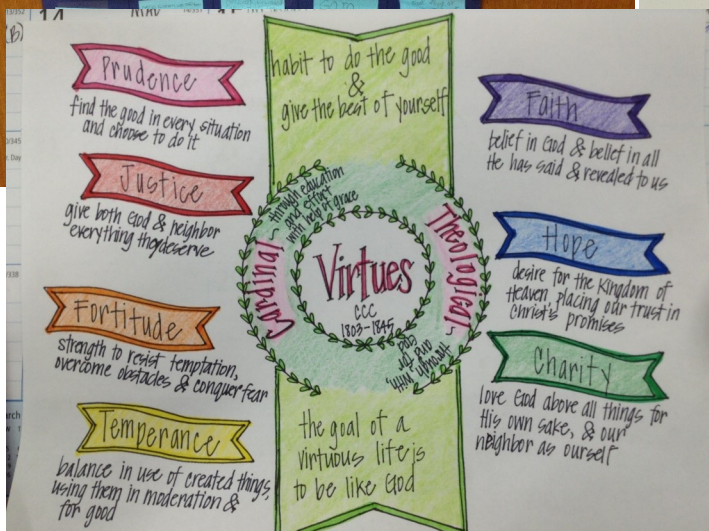 Prudence
find the good in every situation
and choose to do it
Justice
give both God & neighbor
everything they deserve
Fortitude
strength to resist temptation,
overcome obstacles & conquer fear
Temperance
balance in use of created things,
using them in moderation &
for good
habit to do the good
&
give the best of yourself
Cardinal ~
through education
and effort
with help of grace
Virtues
CCC
1803-1845
Theological ~
through, with,
and for
God
the goal of a
virtuous life is
to be like God
Faith
belief in God & belief in all
He has said & revealed to us
Hope
desire for the Kingdom of
Heaven, placing our trust in
Christ's promises
Charity
love God above all things for
His own sake, & our
neighbor as ourself